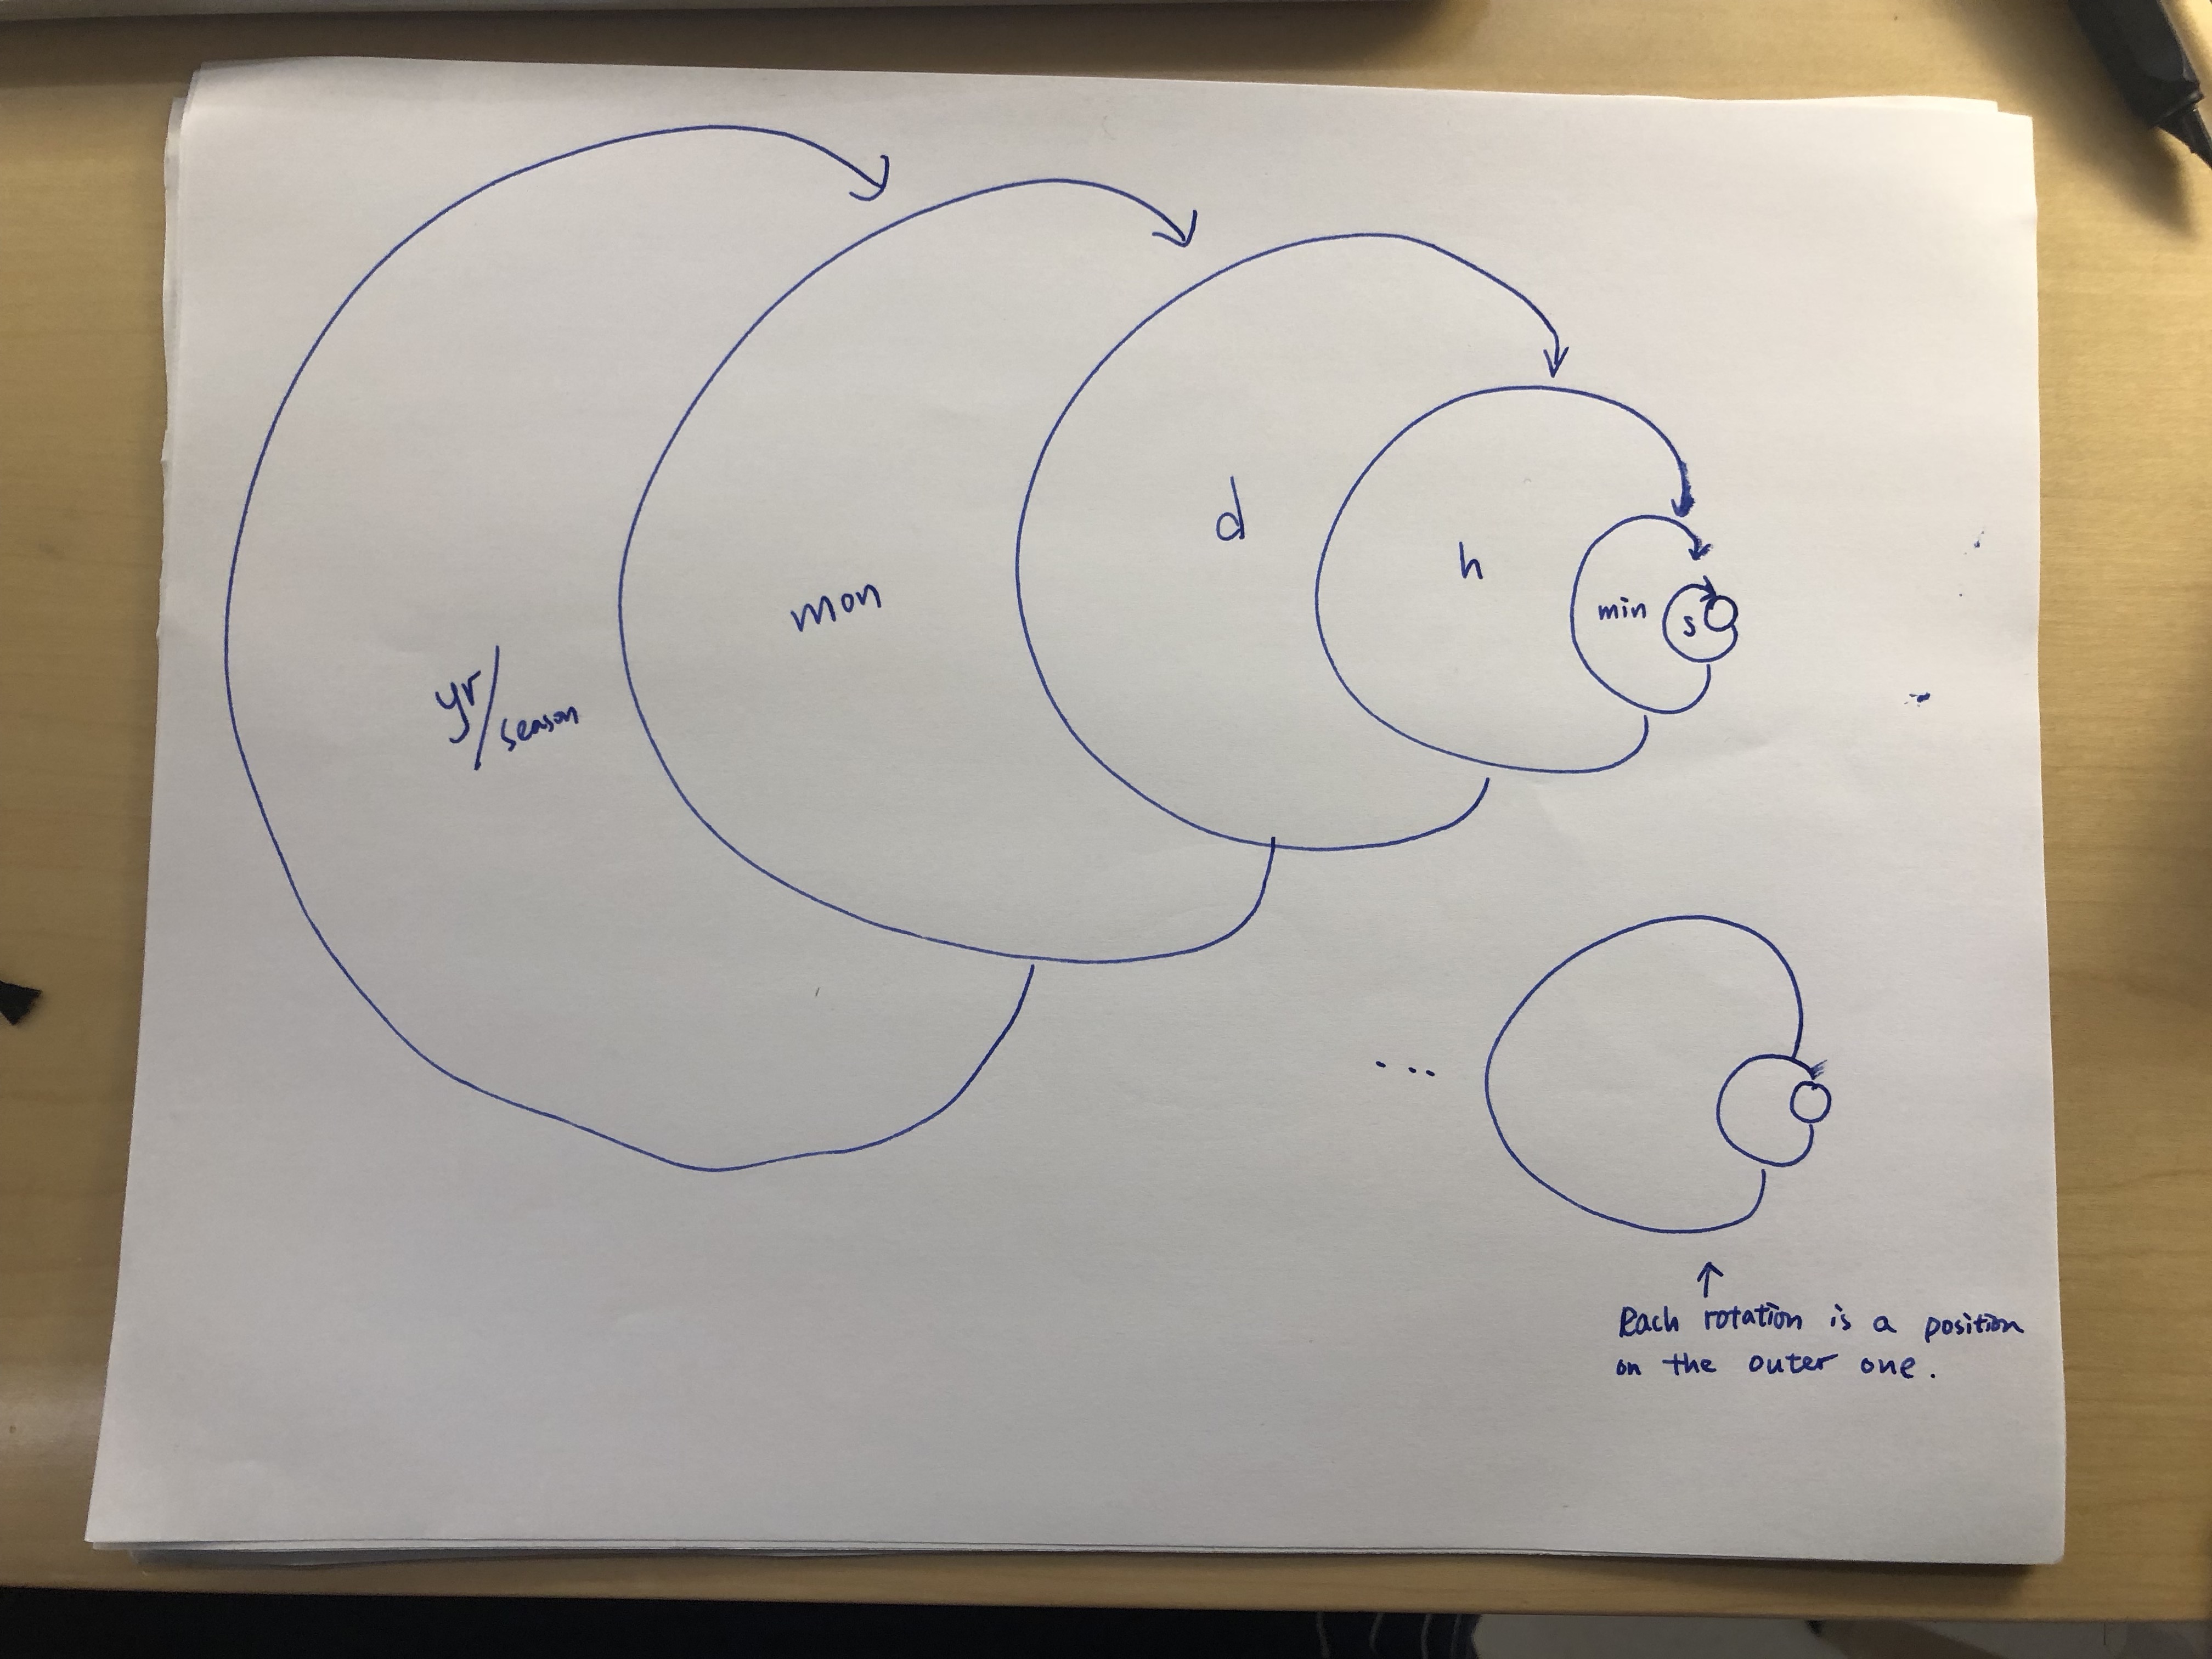 yr/season
mon
d
h
min
s
...
Each rotation is a position
on the outer one.